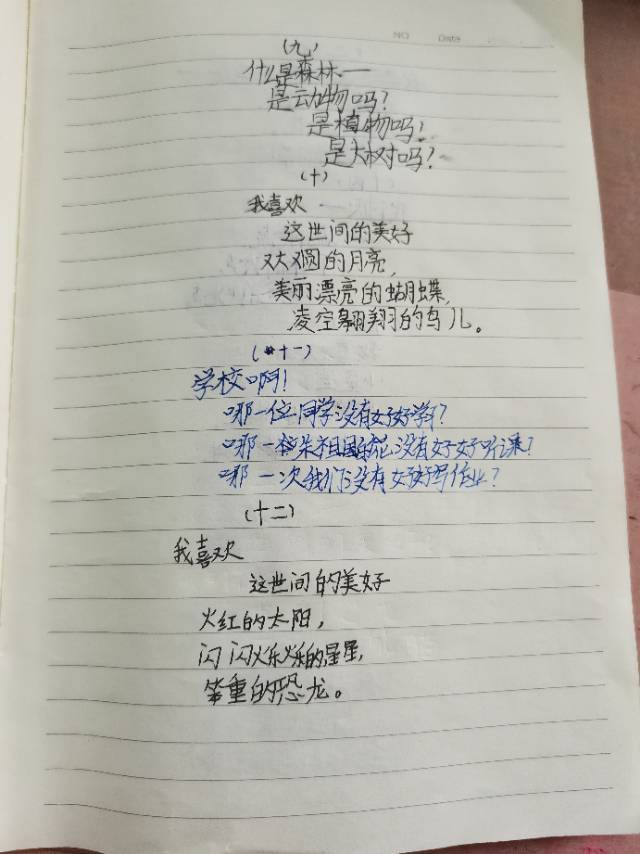 NO
Date
(九)
什么是森林—
是动物吗?
是植物吗?
是大树吗?
(十)
我喜欢
这世间的美好
又大又圆的月亮,
美丽漂亮的蝴蝶,
凌空翱翔的鸟儿。
(十一)
学校啊!
哪一位同学没有好好学?
哪一朵祖国的花没有好好听课?
哪一次我们没有好好写作业?
(十二)
我喜欢
这世间的美好
火红的太阳,
闪闪烁烁的星星,
笨重的恐龙。